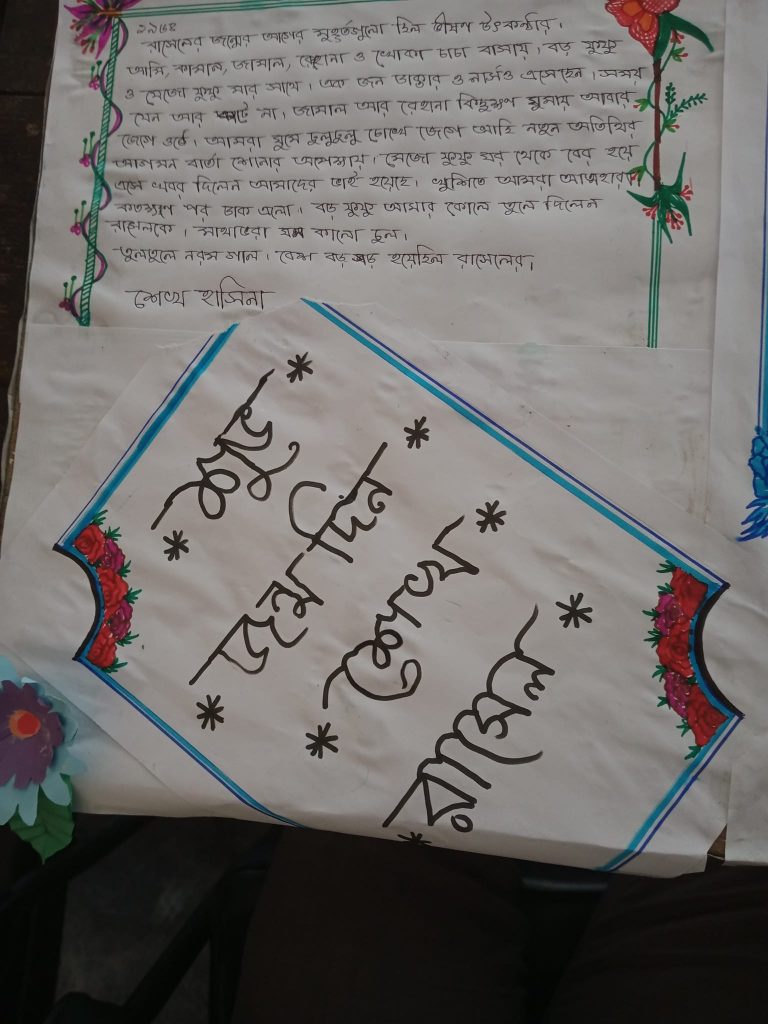 ১৯৬৪
রাসেলের জন্মের আগের মুহূর্তগুলো ছিল ভীষণ উৎকণ্ঠার।
আমি, কামাল, জামাল, রেহানা ও খোকা চাচা বাসায়। বড় ফুফু
ও মেজো ফুফু মার সাথে। এক জন ডাক্তার ও নার্সও এসেছেন। সময়
যেন আর কাটে না। জামাল আর রেহানা কিছুক্ষণ ঘুমায় আবার
জেগে ওঠে। আমরা ঘুমে ঢুলুঢুলু চোখে জেগে আছি নতুন অতিথির
আগমন বার্তা শোনার অপেক্ষায়। মেজো ফুফু ঘর থেকে বের হয়ে
এসে খবর দিলেন আমাদের ভাই হয়েছে। খুশিতে আমরা আত্মহারা।
কতক্ষণে পর ডাক এলো। বড় ফুফু আমার কোলে তুলে দিলেন
রাসেলকে। মাথাভরা ঘন কালো চুল।
তুলতুলে নরম গাল। বেশ বড় সড় হয়েছিল রাসেলের।
শেখ হাসিনা
শুভ
জন্ম দিন
শেখ
রাসেল